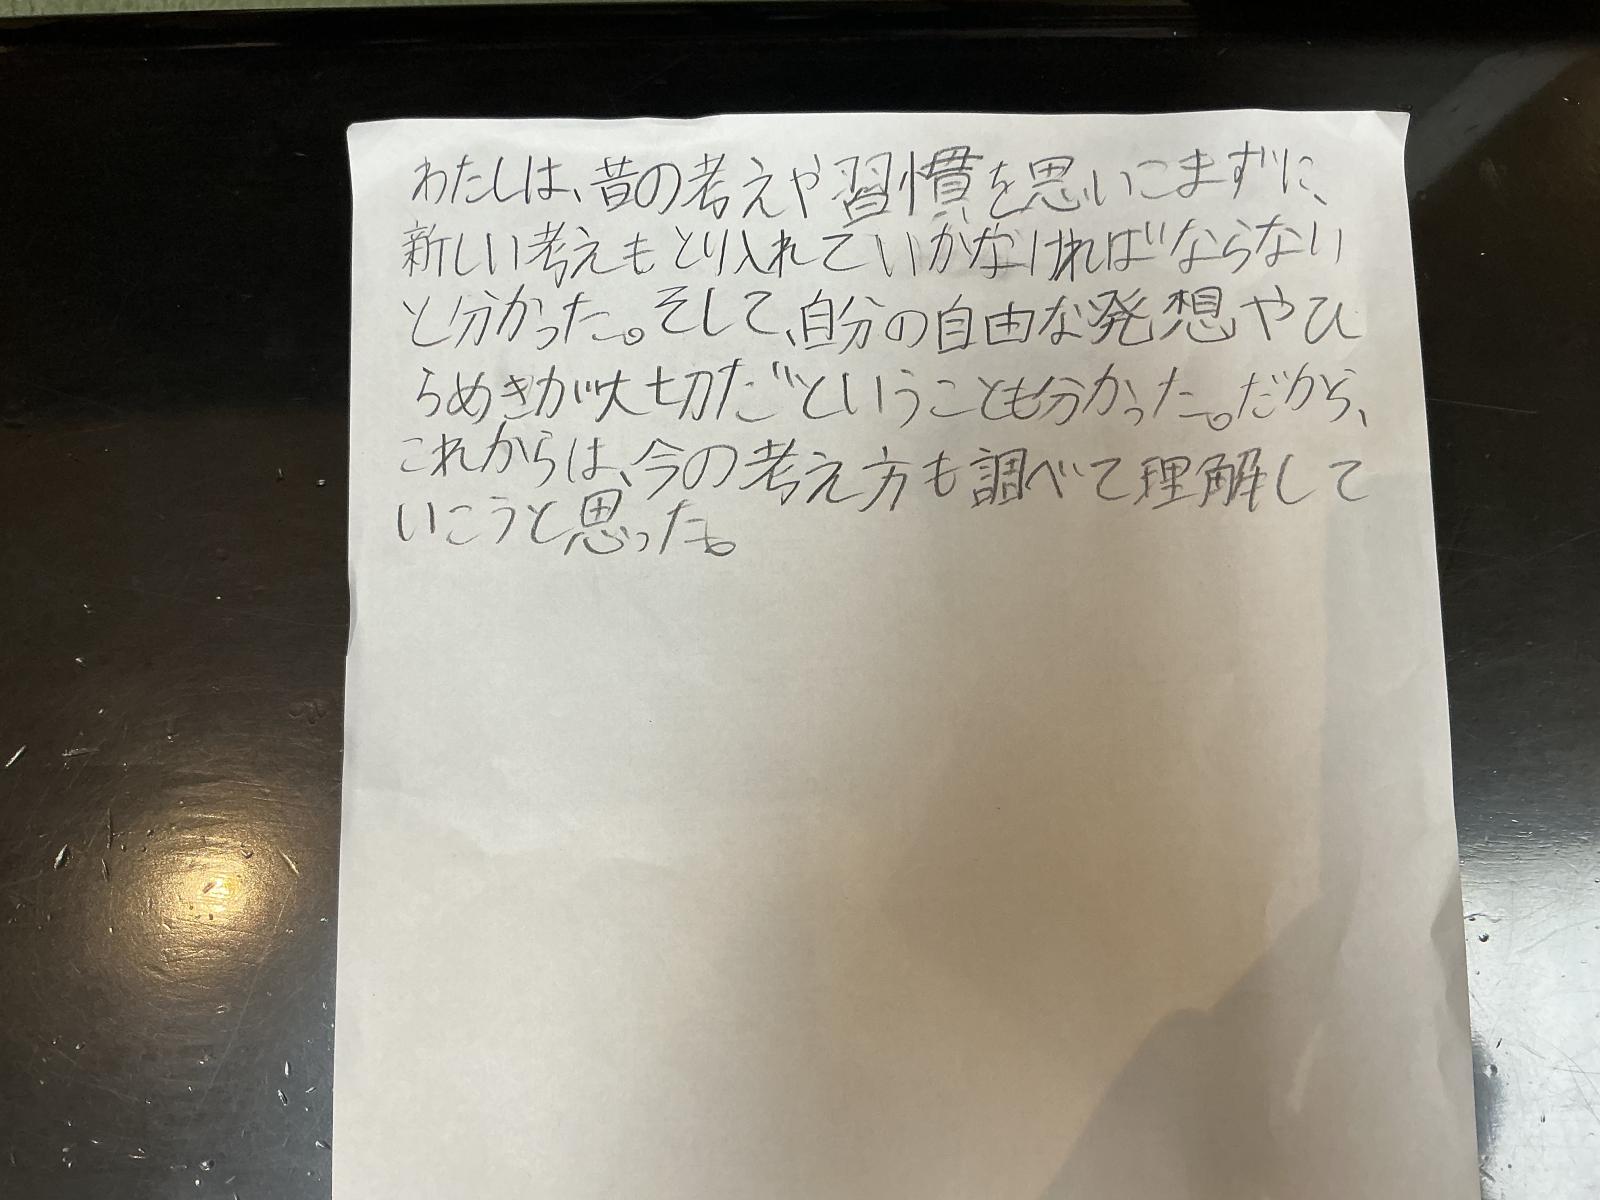 わたしは、昔の考えや習慣を思いこまずに、
新しい考えもとり入れていかなければならない
と分かった。そして、自分の自由な発想やひ
らめきが大切だということも分かった。だから、
これからは、今の考え方も調べて理解して
いこうと思った。